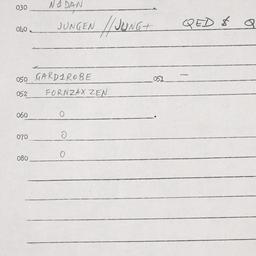 030 NODAN
040 JUNGEN // JUNG+ QED $ Q
050 GARDEROBE 051 —
052 FORNZAXZEN
060 0
070 0
080 0